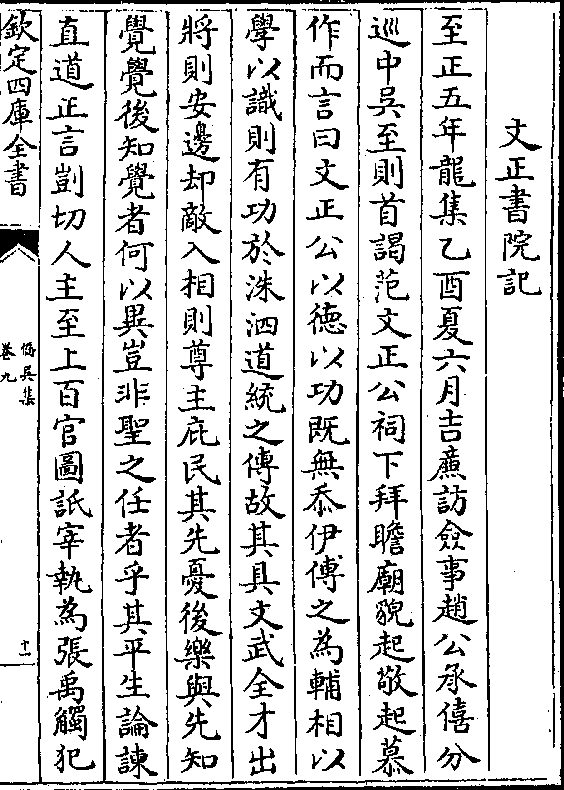 文正書院記
至正五年龍集乙酉夏六月吉廉訪僉事趙公承僖分
巡中吳至則首謁范文正公祠下拜瞻廟貌起敬起慕
作而言曰文正公以德以功既無忝伊傅之為輔相以
學以識則有功於洙泗道統之傳故其具文武全才出
將則安邊却敵入相則尊主庇民其先憂後樂與先知
覺覺後知覺者何以異豈非聖之任者乎其平生論諫
直道正言剴切人主至上百官圖詆宰執為張禹觸犯
欽定四庫全書
僑吳集
卷九
十一